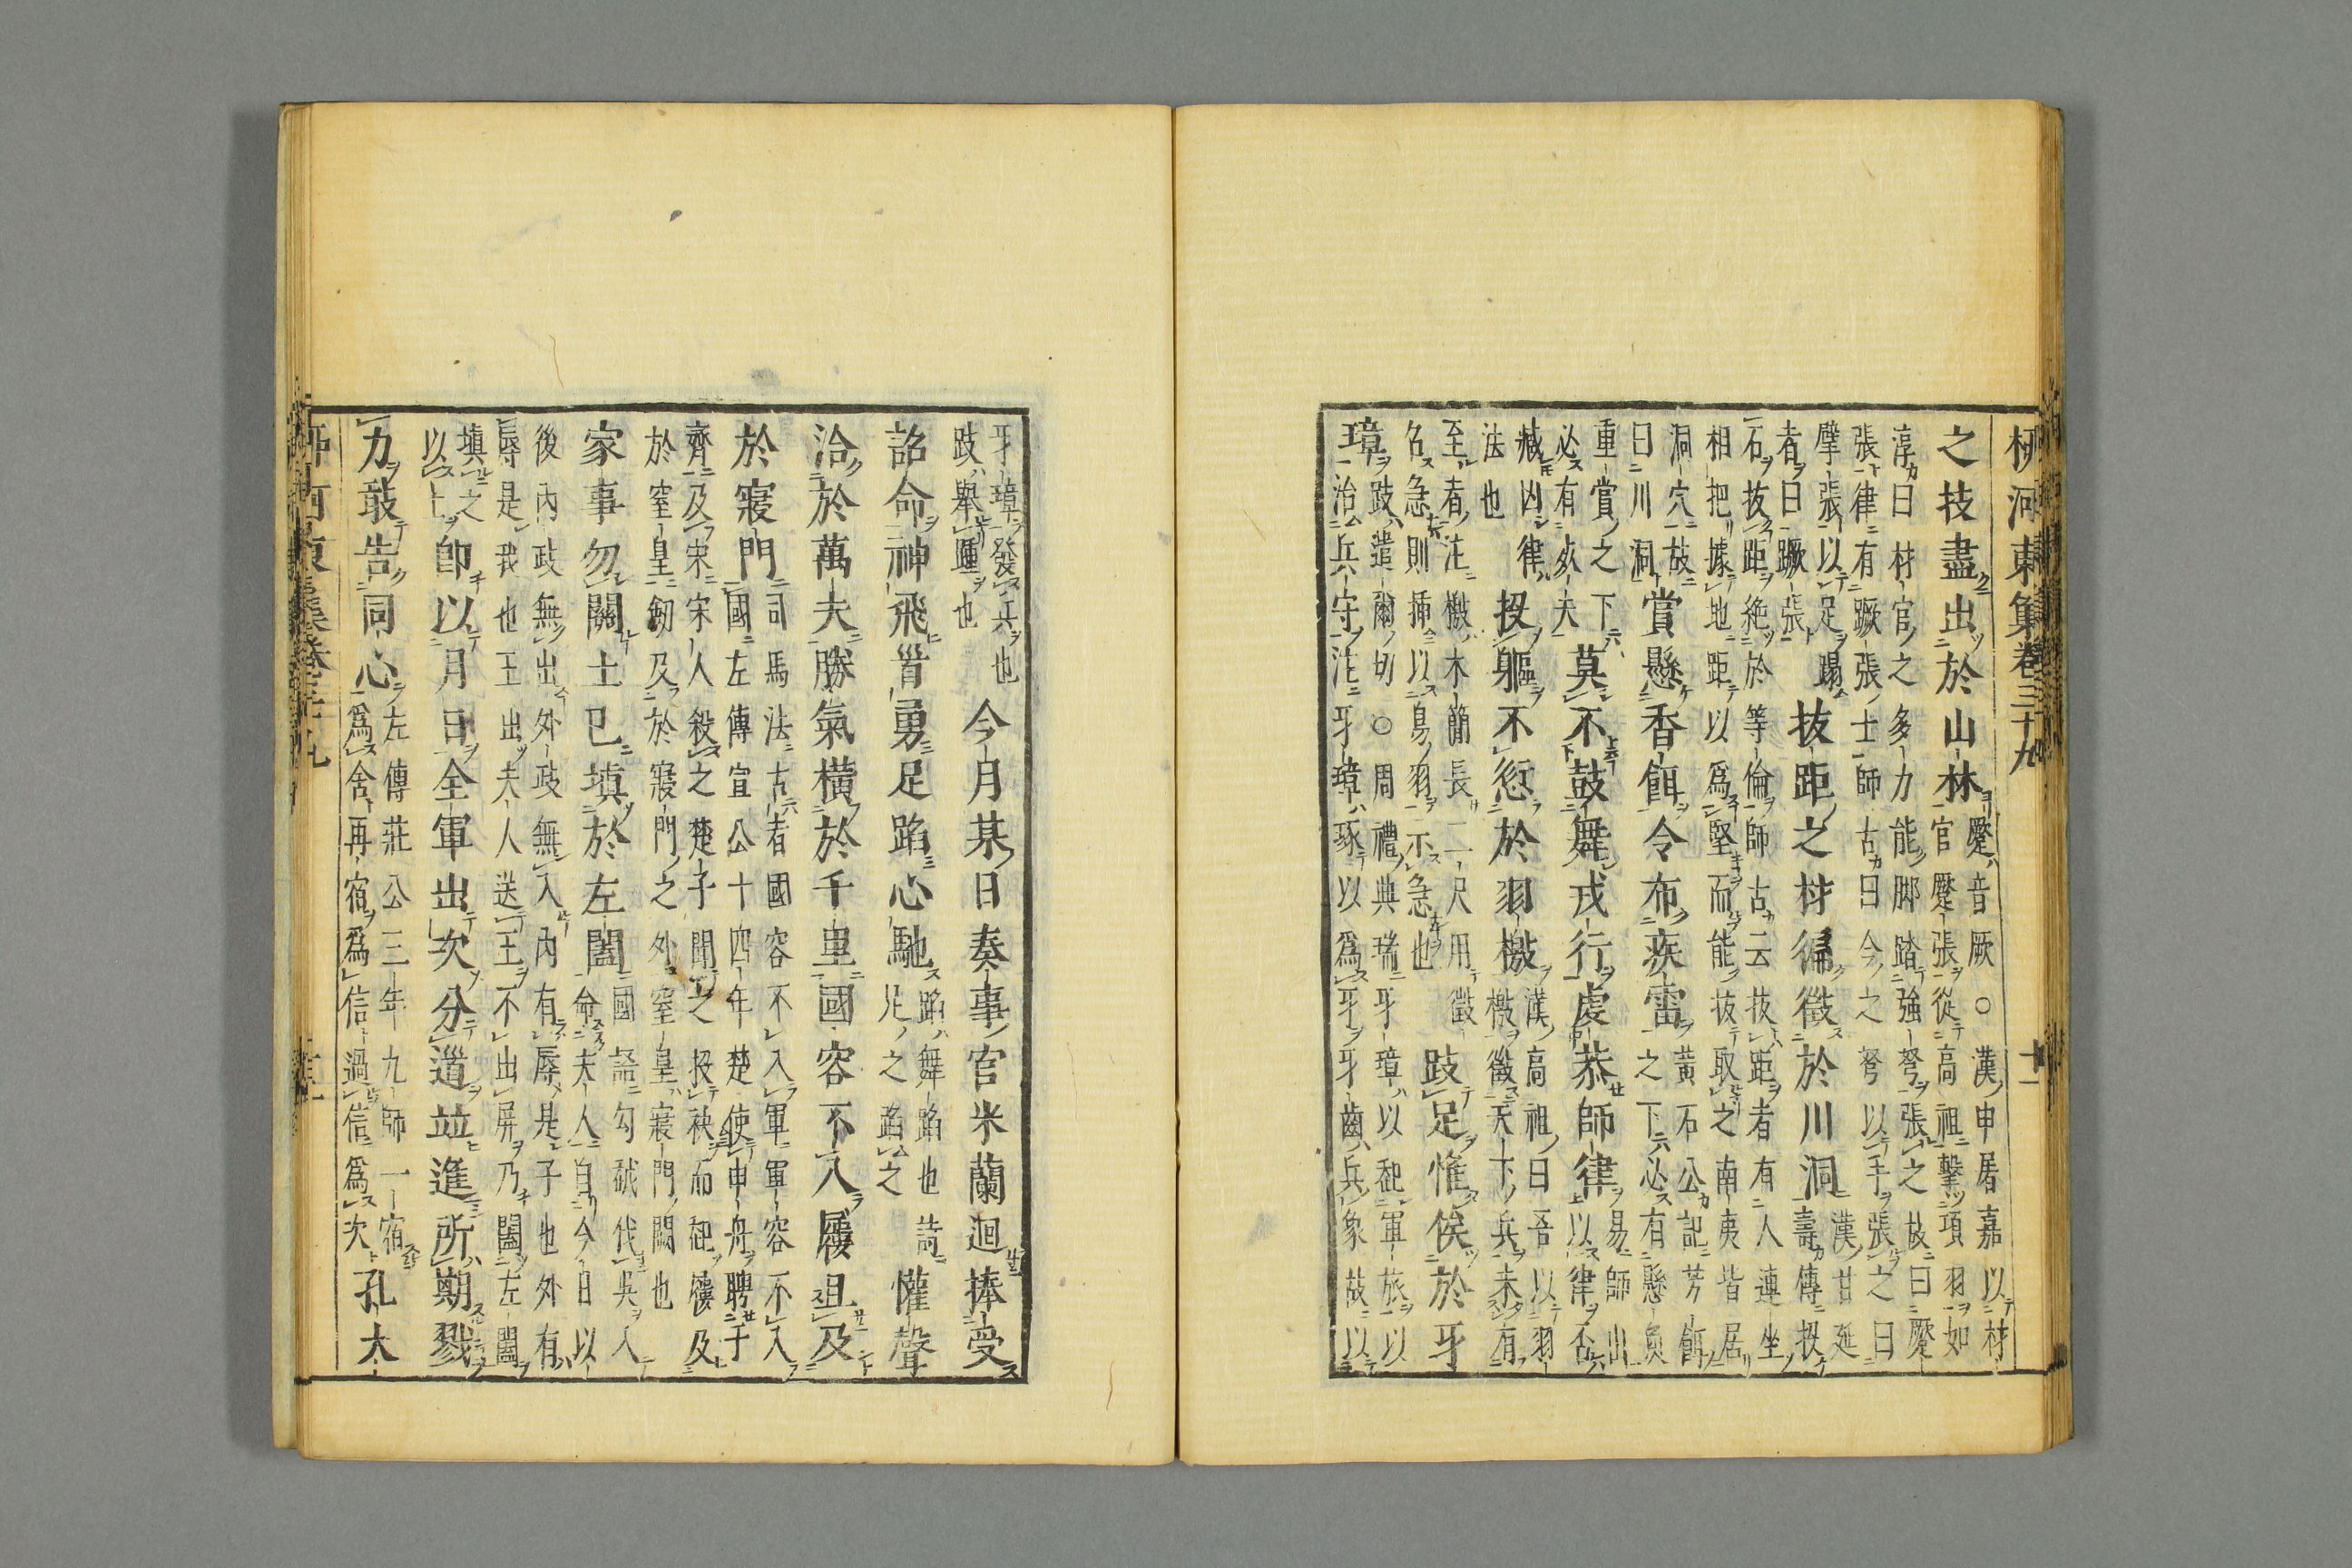 柳河東集卷三十九 十一
之技盡出於山林
蹷音厥○漢申屠嘉以材
官蹷張從高祖擊項羽如
淳曰材官之多力能脚踏強弩張之故曰蹷
張律有蹶張士師古曰今之弩以手張之曰
擘張以足蹋
者曰蹶張
拔距之材徧徵於川洞
漢甘延
壽傳投
石拔距絶於等倫師古云拔距者有人連坐
相把據地距以爲堅而能拔取之南夷皆居
洞穴故
曰川洞
賞懸香餌令布疾雷
黄石公記芳餌
之下必有懸魚
重賞之下
必有死夫
莫不鼓舞戎行虔恭師律
易師出
以律否
臧凶律
法也
投軀不愆於羽檄
漢高祖曰吾以羽
檄徵天下兵未有
至者注檄木簡長二尺用徵
名急則插以鳥羽示急也
跂足惟俟於牙
璋
跂遣爾切○周禮典瑞牙璋以起軍旅以
治兵守注牙璋琢以爲牙牙齒兵象故以
牙璋發兵也
跂舉踵也
今月某日奏事官米蘭迴捧受
詔命神飛首勇足蹈心馳
蹈舞蹈也詩
足之蹈之
懽聲
洽於萬夫勝氣横於千里國容不入屨且及
於寢門
司馬法古者國容不入軍軍容不入
國左傳宣公十四年楚使申舟聘于
齊及宋宋人殺之楚子聞之投袂而起屨及
於窒皇劒及於寢門之外窒皇寢門闕也
家事勿關土已填於左闔
國語勾踐伐吳入
命夫人自今日以
後內政無出外政無入內有辱是子也外有
辱是我也王出夫人送王不出屏乃闔左闔
填之
以土
卽以月日全軍出次分道竝進所期戮
力敢告同心
左傳莊公三年九師一宿
爲舍再宿爲信過信爲次
孔大
柳河東集卷三十九